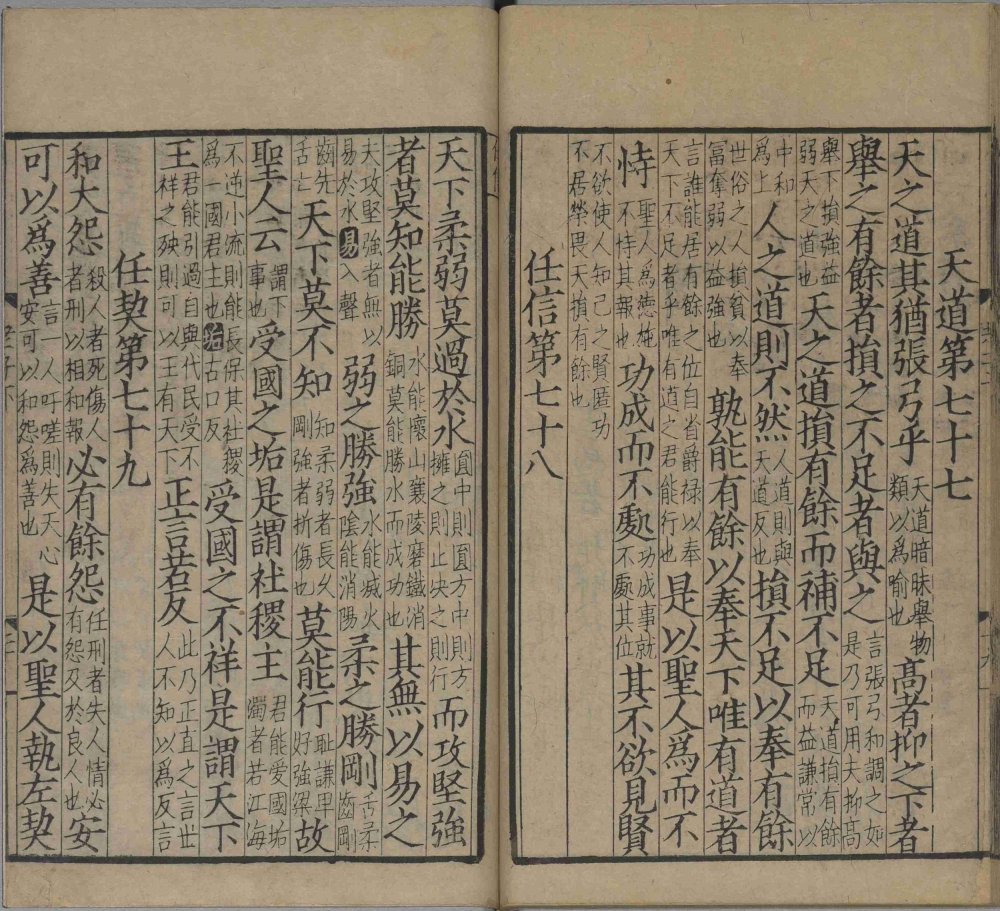 天道第七十七
天之道其猶張弓乎天道暗昧舉物類以爲喻也高者抑之下者
舉之有餘者損之不足者與之言張弓和調之如是乃可用夫抑高
舉下損強益弱天之道也天之道損有餘而補不足天道損有餘而益謙常以
中和爲上人之道則不然人道則與天道反也損不足以奉有餘
世俗之人損貧以奉富奪弱以益強也孰能有餘以奉天下唯有道者
言誰能居有餘之位自省爵祿以奉天下不足者乎唯有道之君能行也是以聖人爲而不
恃聖人爲德施不恃其報也功成而不處功成事就不處其位其不欲見賢
不欲使人知己之賢匿功不居榮畏天損有餘也
任信第七十八
天下柔弱莫過於水圓中則圓方中則方擁之則止決之則行而攻堅強
者莫知能勝水能懷山襄陵磨鐵消銅莫能勝水而成功也其無以易之
夫攻堅強者無以易於水易入聲弱之勝強水能滅火陰能消陽柔之勝剛舌柔齒剛
齒先舌亡天下莫不知知柔弱者長久剛強者折傷也莫能行恥謙卑好強梁故
聖人云謂下事也受國之垢是謂社稷主君能受國垢濁者若江海
不逆小流則能長保其社稷爲一國君主也垢古口反受國之不祥是謂天下
王君能引過自與代民受不祥之殃則可以王有天下正言若反此乃正直之言世人不知以爲反言
任契第七十九
和大怨殺人者死傷人者刑以相和報必有餘怨任刑者失人情必有怨及於良人也安
可以爲善言一人吁嗟則失天心安可以和怨爲善也是以聖人執左契